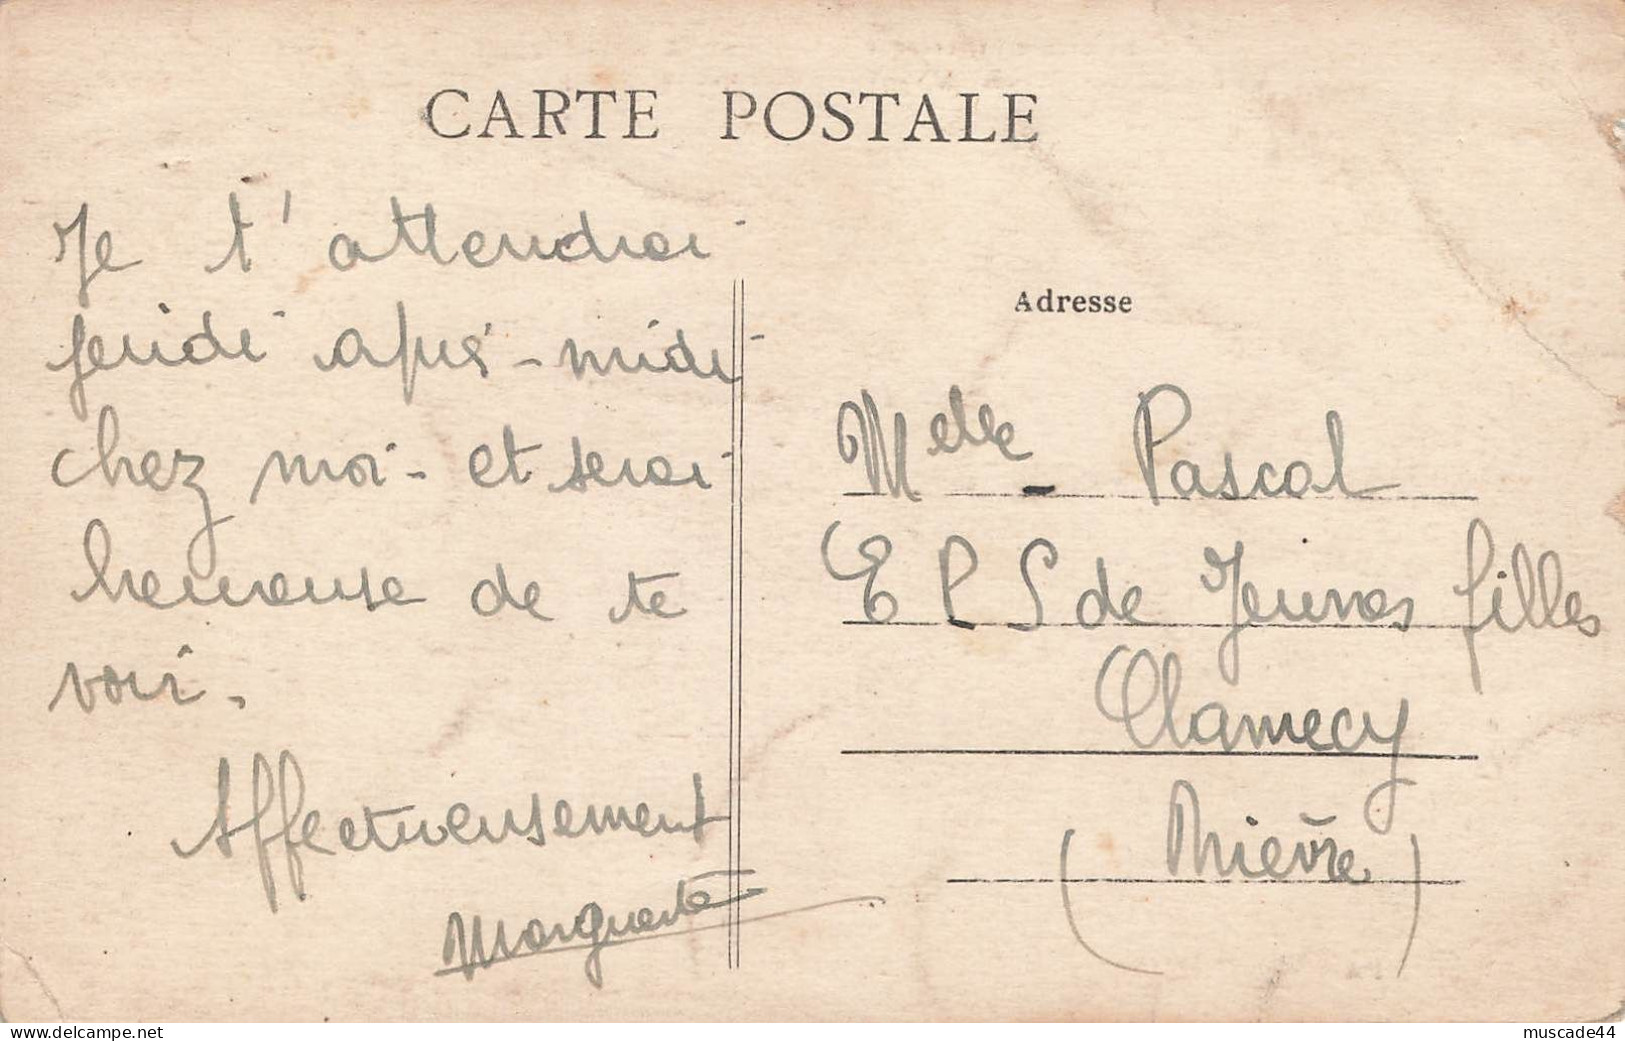 CARTE POSTALE
Je t'attendrai
jeudi après-midi
chez moi - et serai
heureuse de te
voir.
Affectueusement
Marguerite
Adresse
Melle Pascal
E P S de Jeunes filles
Clamecy
(Nièvre)
www.delcampe.net
muscade44